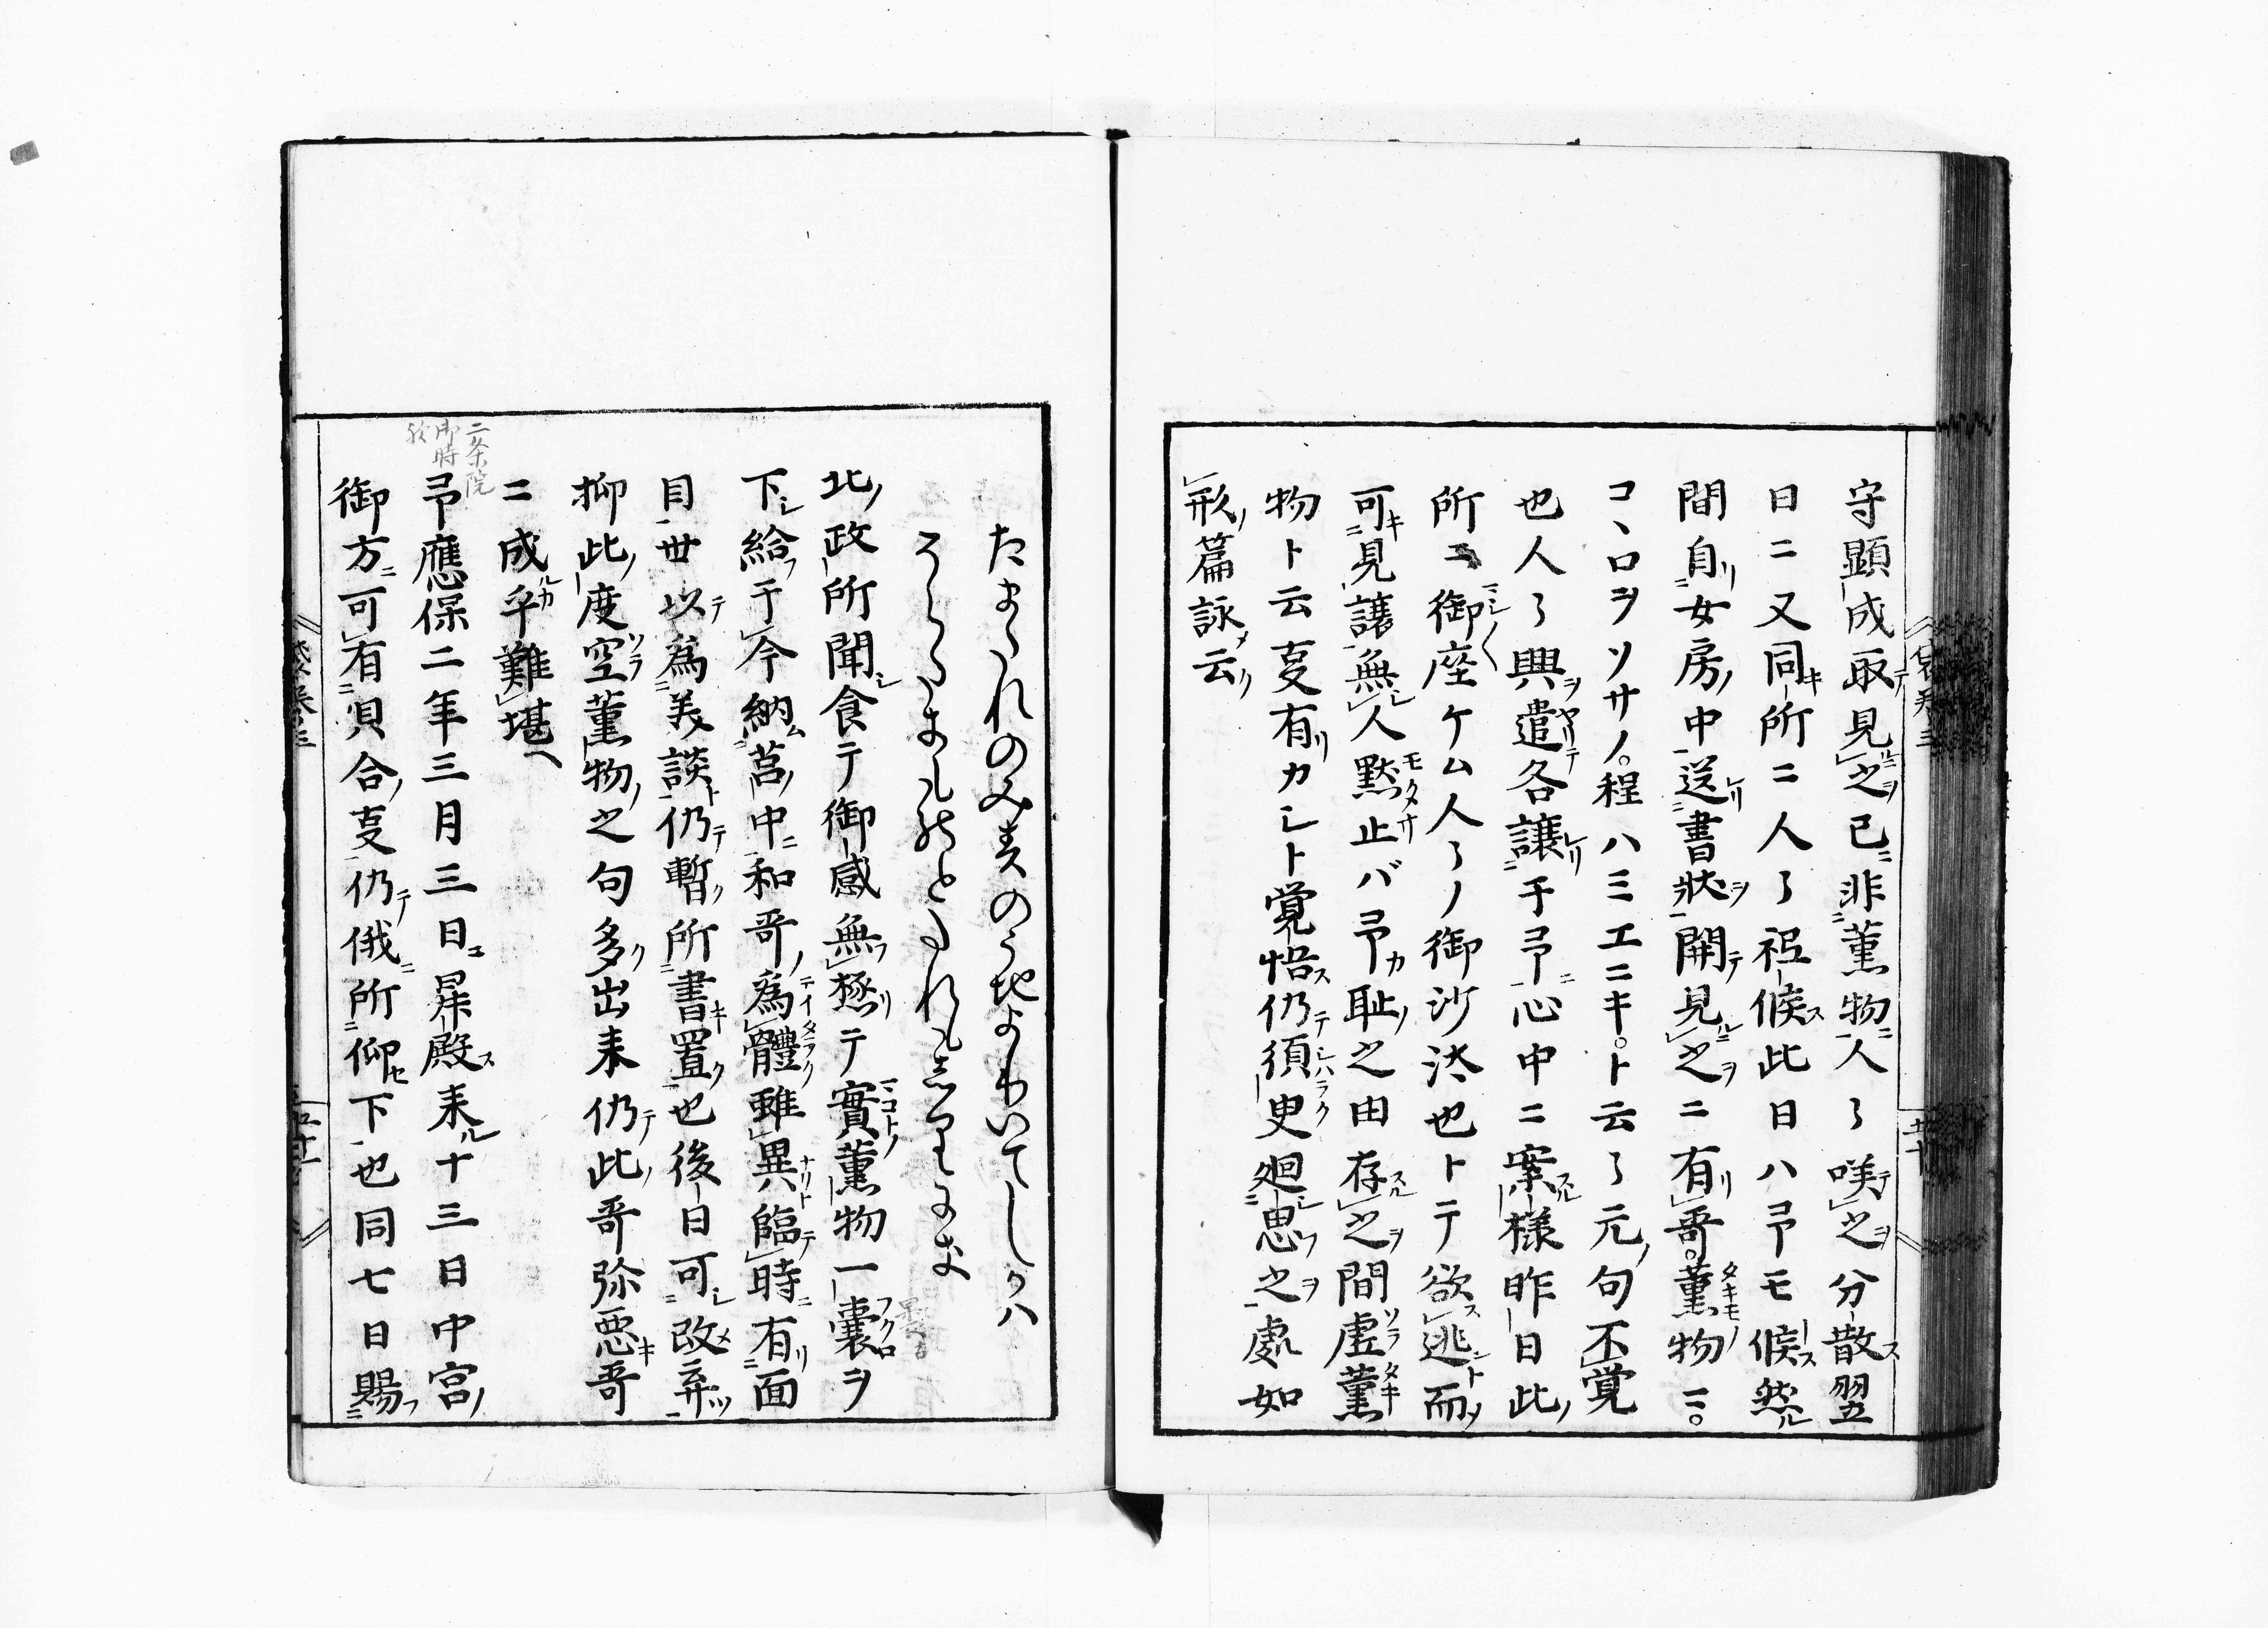 守顕成取見之已非薫物人々咲之分散翌
日ニ又同所ニ人々祗候此日ハ予モ候然
間自女房中送書状開見之ニ有哥薫物ニ
コヽロヲソサノ程ハミエニキト云々元句不覚
也人々興遣各譲于予心中ニ案様昨日此
所ニ御座ケム人々ノ御沙汰也トテ欲逃而
可見譲無人黙止バ予耻之由存之間虚薫
物ト云叓有カシト覚悟仍須臾廻思之處如
形篇詠云
たまたれのみすのうちよりいてしかハ
そらたきものとたれもしりにき
北政所聞食テ御感無極テ實薫物一嚢ヲ
下給于今納莒中和哥為體雖異臨時有面
目世以為美談仍暫所書置也後日可改弃
抑此度空薫物之句多出来仍此哥弥悪哥
ニ成乎難堪
二条院
御時
歟
予應保二年三月三日昇殿来十三日中宮
御方可有貝合叓仍俄所仰下也同七日賜